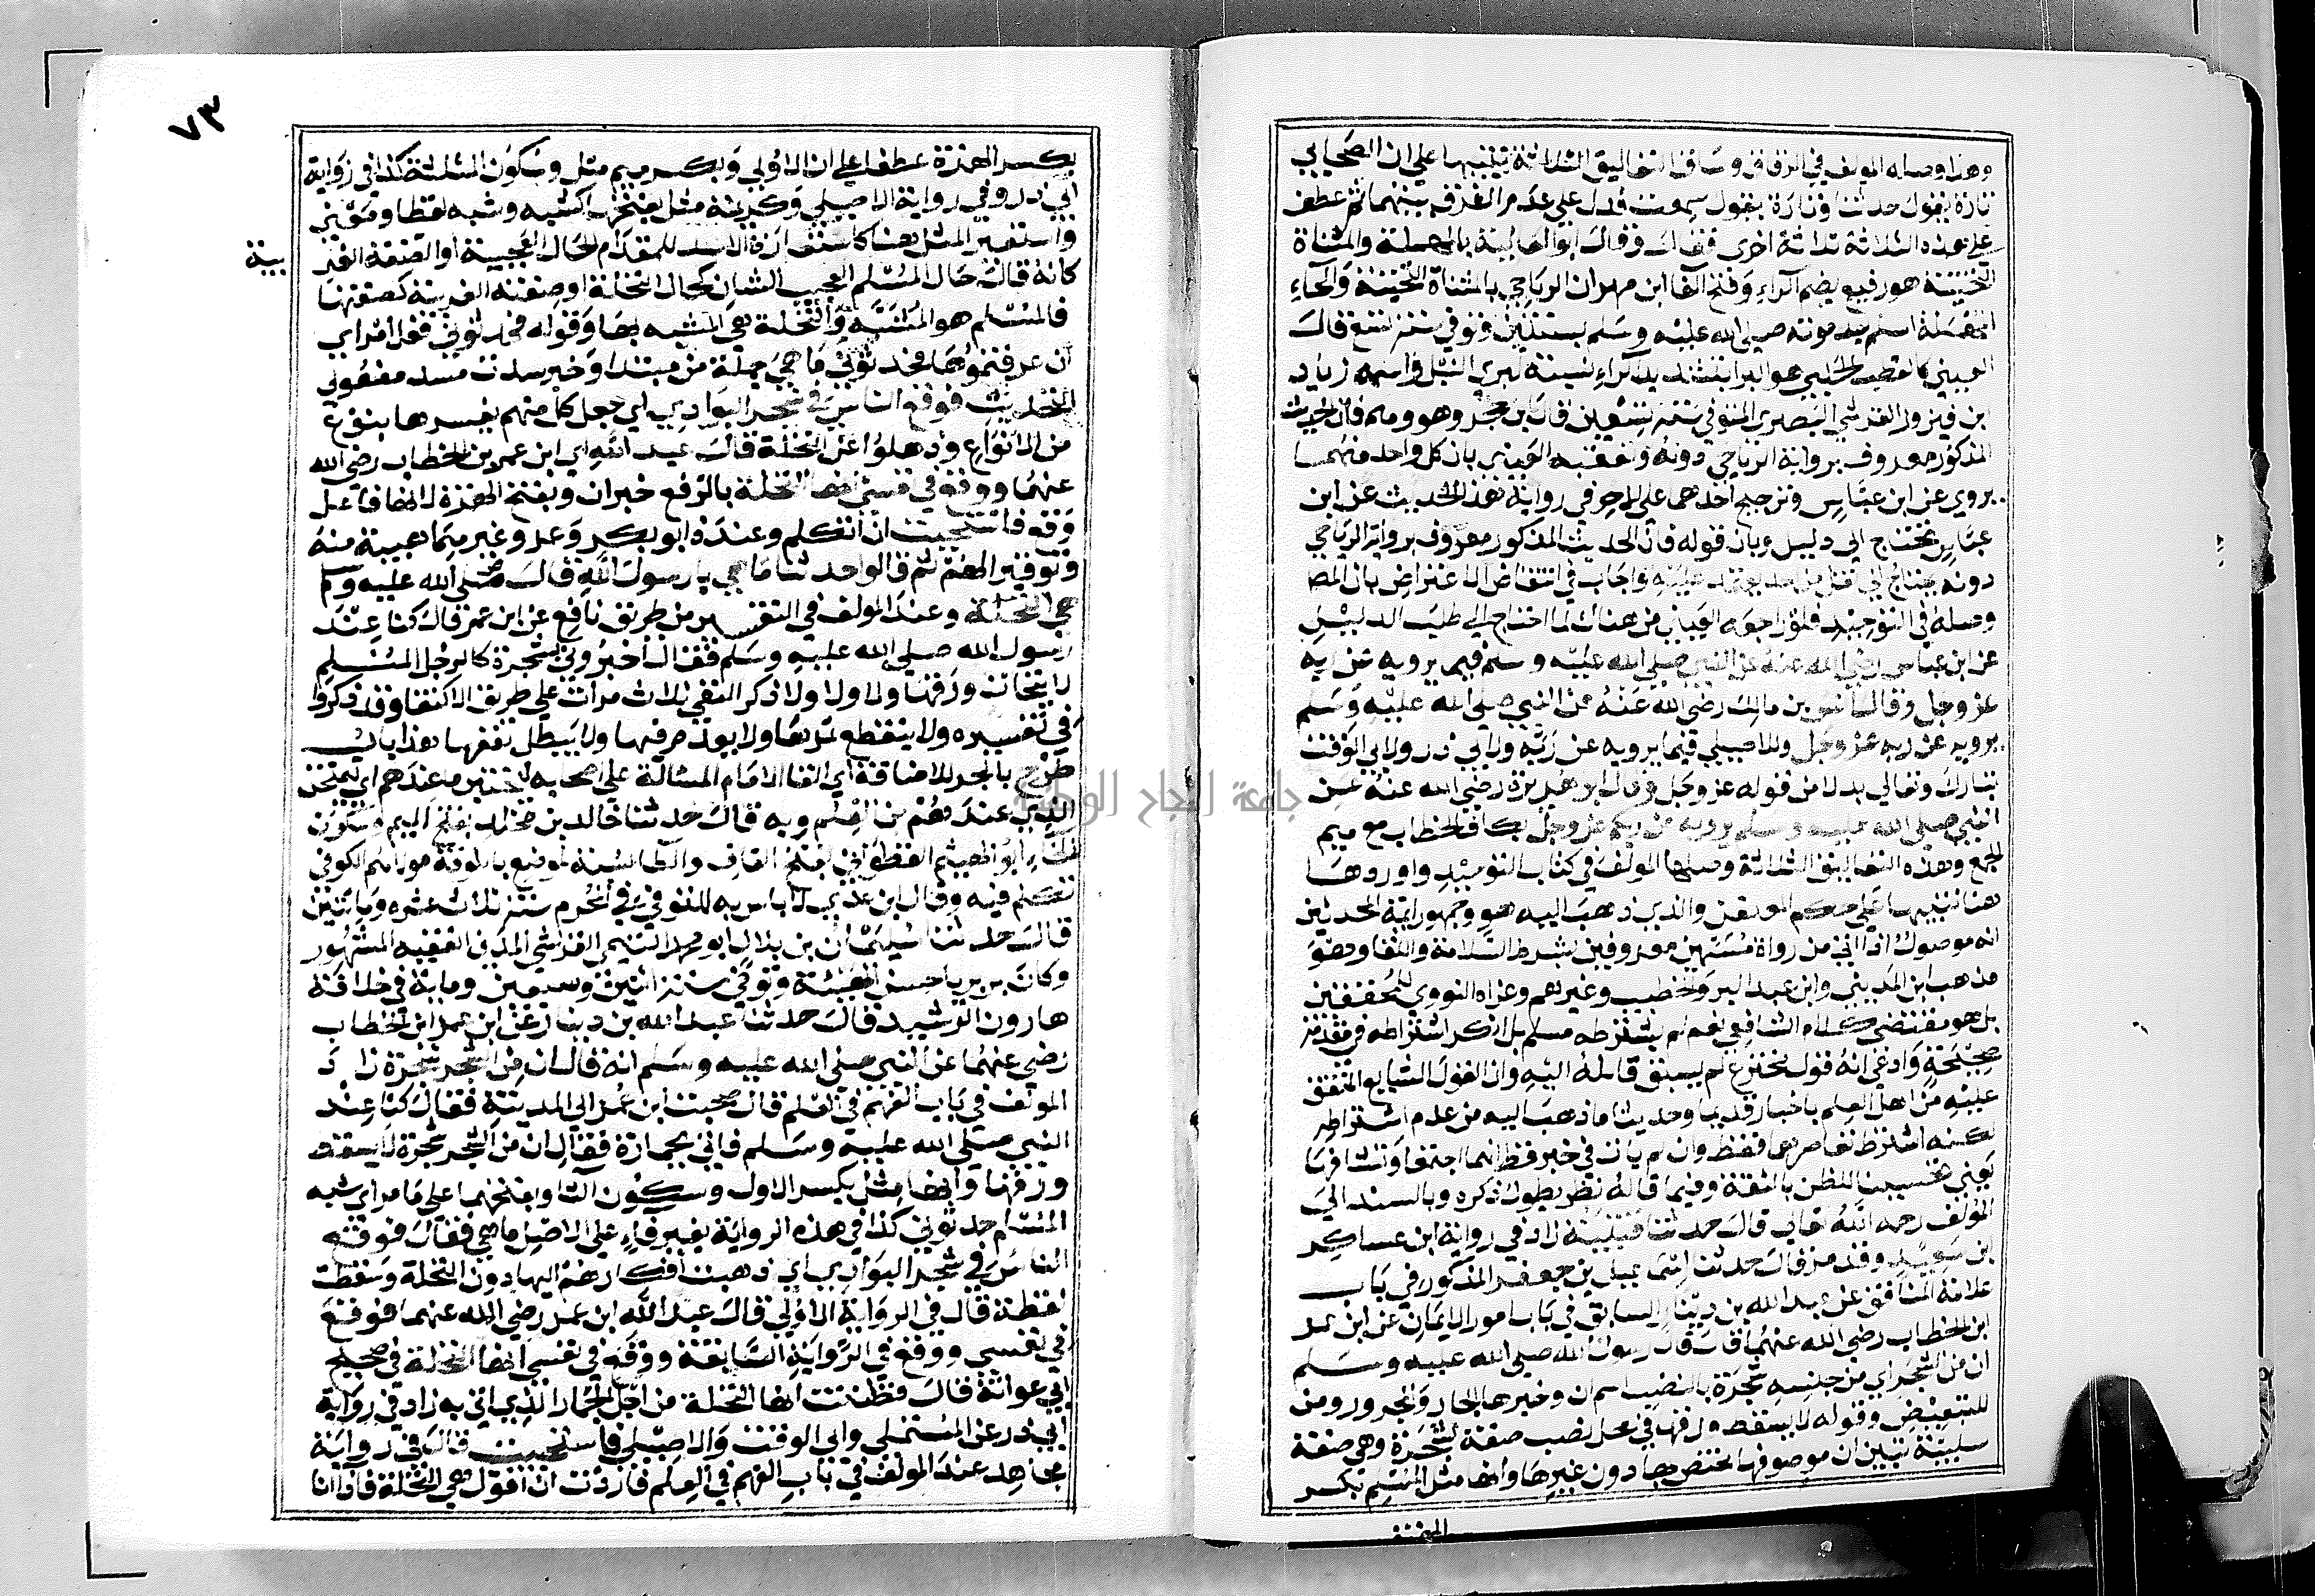 وهذا وصله المولف في الرقاق وساق التعاليق الثلاثة تنبيها على ان الصحابي
تارة يقول حدثنا وتارة يقول سمعت فدل على عدم الفرق بينهما ثم عطف
على هذه الثلاثة ثلاثة اخرى فقال وقال ابو العالية بالمهملة والمثناة
التحتية هو رفيع بضم الراء وفتح الفا ابن مهران الرياحي بالمثناة التحتية والحاء
المهملة اسلم بعد موته صلى الله عليه وسلم بسنتين وتوفي سنة تسع قال
العيني كالقطب الحلبي هو البرا بتشديد الراء نسبة لبري النبل واسمه زياد
ابن فيروز القرشي البصري المتوفى سنة تسعين قال ابن حجر وهو وهم فان الحديث
المذكور معروف برواية الرياحي دونه وتعقبه العيني بان كل واحد منهما
يروي عن ابن عباس وترجيح احدهما على الاخر في رواية هذا الحديث عن ابن
عباس تحتاج الى دليل وبان قوله فان الحديث المذكور معروف برواية الرياحي
دونه يحتاج الى نقل من احد يعتمد عليه واجاب في انتقاض الاعتراض بان المص
وصله في التوحيد فلو راجعه العيني من هناك لما احتاج الى طلب الدليل
عن ابن عباس رضي الله عنه عن النبي صلى الله عليه وسلم فيما يرويه عن ربه
عز وجل وقال انس بن مالك رضي الله عنه عن النبي صلى الله عليه وسلم
يرويه عن ربه عز وجل وللاصيلي فيما يرويه عن ربه ولابي ذر ولابي الوقت
تبارك وتعالى بدلا من قوله عز وجل وقال ابو هريرة رضي الله عنه عن
النبي صلى الله عليه وسلم يرويه عن ربكم عز وجل بكاف الخطاب مع ميم
الجمع وهذه التعاليق الثلاثة وصلها المولف في كتاب التوحيد واوردها
هنا تنبيها على حكم المعنعن والذي ذهب اليه هو وجمهور ايمة المحدثين
انه موصول اذا اتى من رواة مسمين معروفين بشرط السلامة واللقا وهو
مذهب ابن المديني وابن عبد البر والخطيب وغيرهم وعزاه النووي للمحققين
بل هو مقتضى كلام الشافعي نعم لم يشترطه مسلم بل انكر اشتراطه في مقدمة
صحيحه وادعى انه قول مخترع لم يسبق قائله اليه وان القول الشايع المتفق
عليه من اهل العلم بالاخبار قديما وحديثا ما ذهب اليه من عدم اشتراطه
لكنه اشترط تعاصرهما فقط وان لم يات في خبر قط انهما اجتمعا او تشافها
يعني تحسينا للظن بالثقة وفيما قاله نظر يطول ذكره وبالسند الى
المؤلف رحمه الله تعالى قال حدثنا قتيبة زاد في رواية ابن عساكر
ابن سعيد وقد مر قال حدثنا اسماعيل بن جعفر المذكور في باب
علامة المنافق عن عبد الله بن دينار السابق في باب امور الايمان عن ابن عمر
ابن الخطاب رضي الله عنهما قال قال رسول الله صلى الله عليه وسلم
ان من الشجر اي من جنسه شجرة بالنصب اسم ان وخبرها الجار والمجرور ومن
للتبعيض وقوله لا يسقط ورقها في محل نصب صفة لشجرة وهي صفة
سلبية تبين ان موصوفها مختص بها دون غيرها وانها مثل المسلم بكسر
الهمزة
٧٣
بكسر الهمزة عطفا على ان الاولى وبكسر ميم مثل وسكون المثلثة كذا في رواية
ابي ذر وفي رواية الاصيلي وكريمة مثل بفتحهما كشبه وشبه لفظا ومعنى
واستعير المثل هنا كاستعارة الاسد للمقدام للحال العجيبة او الصفة الغر
يبة
كانه قال حال المسلم العجيب الشان كحال النخلة او صفته الغريبة كصفتها
فالمسلم هو المشبه والنخلة هي المشبه بها وقوله فحدثوني فعل امر اي
ان عرفتموها فحدثوني ما هي جملة من مبتدا وخبر سدت مسد مفعولي
التحديث فوقع الناس في شجر البوادي اي جعل كل منهم يفسرها بنوع
من الانواع وذهلوا عن النخلة قال عبد الله اي ابن عمر بن الخطاب رضي الله
عنهما ووقع في نفسي انها النخلة بالرفع خبر ان وبفتح الهمزة لانها فاعل
وقع فاستحييت ان اتكلم وعنده ابو بكر وعمر وغيرهما هيبة منه
وتوقيرا لهم ثم قالوا حدثنا ما هي يا رسول الله قال صلى الله عليه وسلم
هي النخلة وعند المولف في التفسير من طريق نافع عن ابن عمر قال كنا عند
رسول الله صلى الله عليه وسلم فقال اخبروني بشجرة كالرجل المسلم
لا يتحات ورقها ولا ولا ولا ذكر النفي ثلاث مرات على طريق الاكتفا وقد ذكروا
في تفسيره ولا ينقطع ثمرها ولا يعدم فيها ولا يبطل نفعها هذا باب
طرح بالجر للاضافة اي القا الامام المسالة على اصحابه ليختبر ما عندهم اي ليمتحن
الذي عندهم من العلم وبه قال حدثنا خالد بن مخلد بفتح الميم وسكون
الخاء ابو الهيثم القطواني بفتح القاف والطا نسبة لموضع بالكوفة مولاهم الكوفي
تكلم فيه وقال ابن عدي لا باس به المتوفى في المحرم سنة ثلاث عشرة ومائتين
قال حدثنا سليمان بن بلال ابو محمد التيمي القرشي المدني الفقيه المشهور
وكان بربريا حسن الهيئة وتوفي سنة اثنين وسبعين وماية في خلافة
هارون الرشيد قال حدثنا عبد الله بن دينار عن ابن عمر ابن الخطاب
رضي عنهما عن النبي صلى الله عليه وسلم انه قال ان من الشجر شجرة زاد
المولف في باب الفهم في العلم قال صحبت ابن عمر الى المدينة فقال كنا عند
النبي صلى الله عليه وسلم فاتي بجمارة فقال ان من الشجر شجرة لا يسقط
ورقها وانها مثل بكسر الاول وسكون الثا وبفتحهما على ما مر اي شبه
المسلم حدثوني كذا في هذه الرواية بغير فاء على الاصل ما هي فقال فوقع
الناس في شجر البوادي اي ذهبت افكارهم اليها دون النخلة وسقطت
لفظة قال في الرواية الاولى قال عبد الله ابن عمر رضي الله عنهما فوقع
في نفسي ووقع في الرواية السابقة ووقع في نفسي انها النخلة في صحيح
ابي عوانة قال فظننت انها النخلة من اجل الجمار الذي اتى به زاد في رواية
ابي ذر عن المستملي وابي الوقت والاصيلي فاستحييت قال في رواية
مجاهد عند المولف في باب الفهم في العلم فاردت ان اقول هي النخلة فاذا انا
جامعة النجاح الوطنية